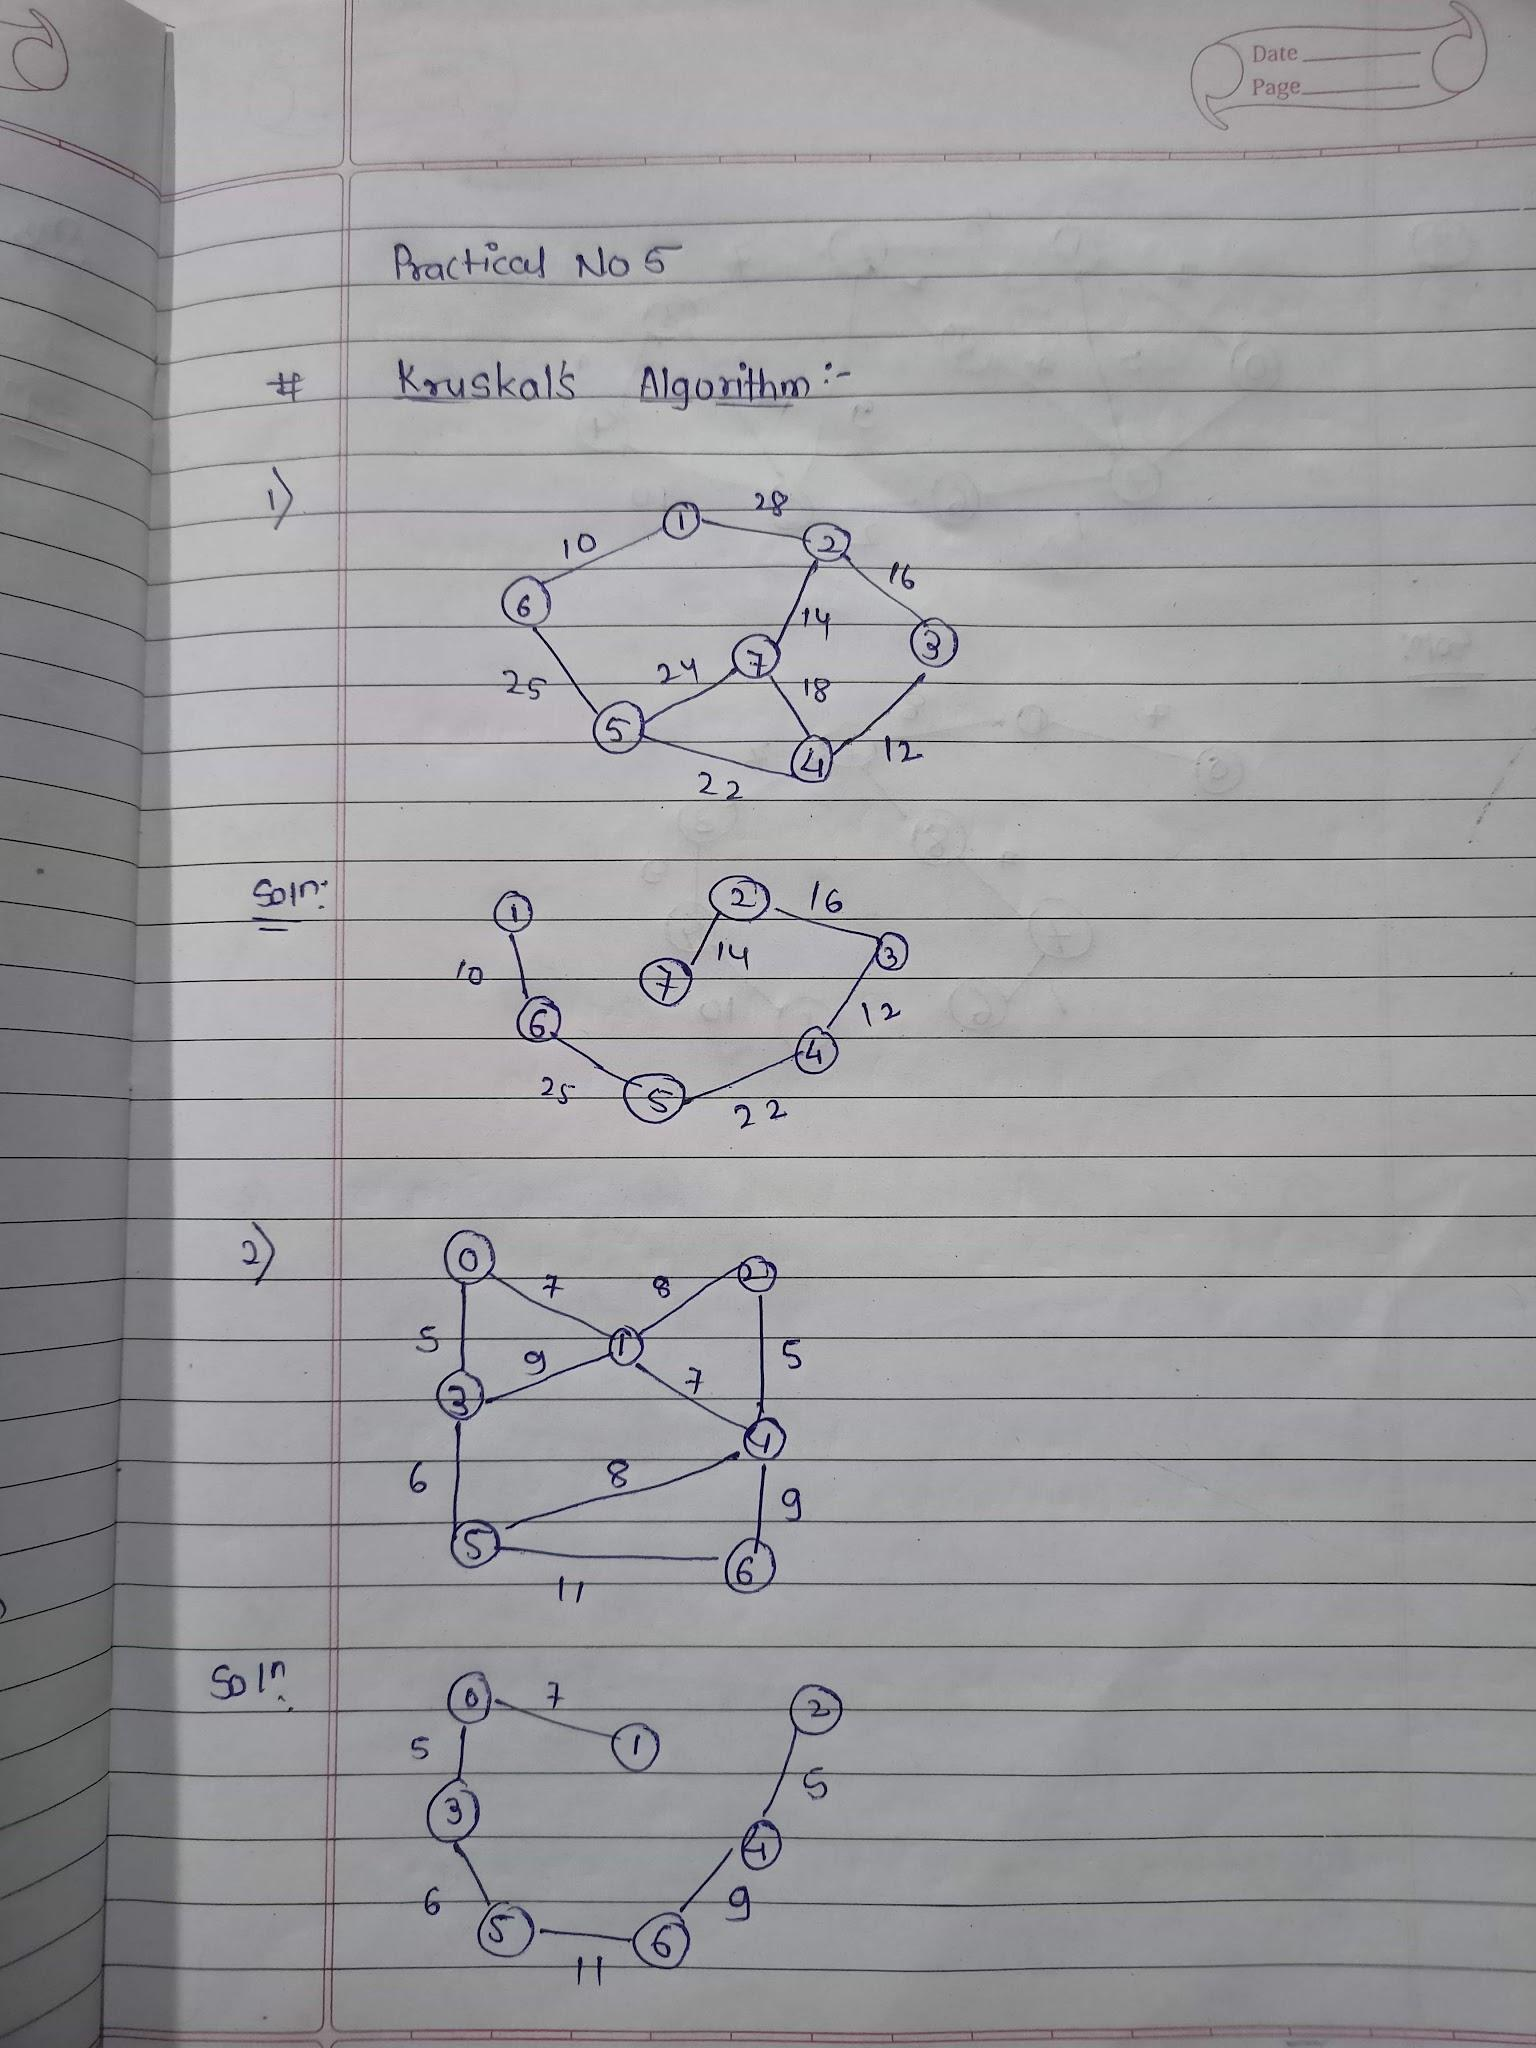 Date
Page
Practical No 5
# Kruskal's Algorithm :-
1)
28
10 1 2
16
6
14
7 3
25 24
18
5
4 12
22
Soln:
2 16
1
14 3
10 7
6 12
4
25 5 22
2)
0 2
7 8
5 1 5
9
3 7
4
6 8
9
5
6
11
Soln:
0 7 2
5 1
5
3
4
6 9
5 6
11